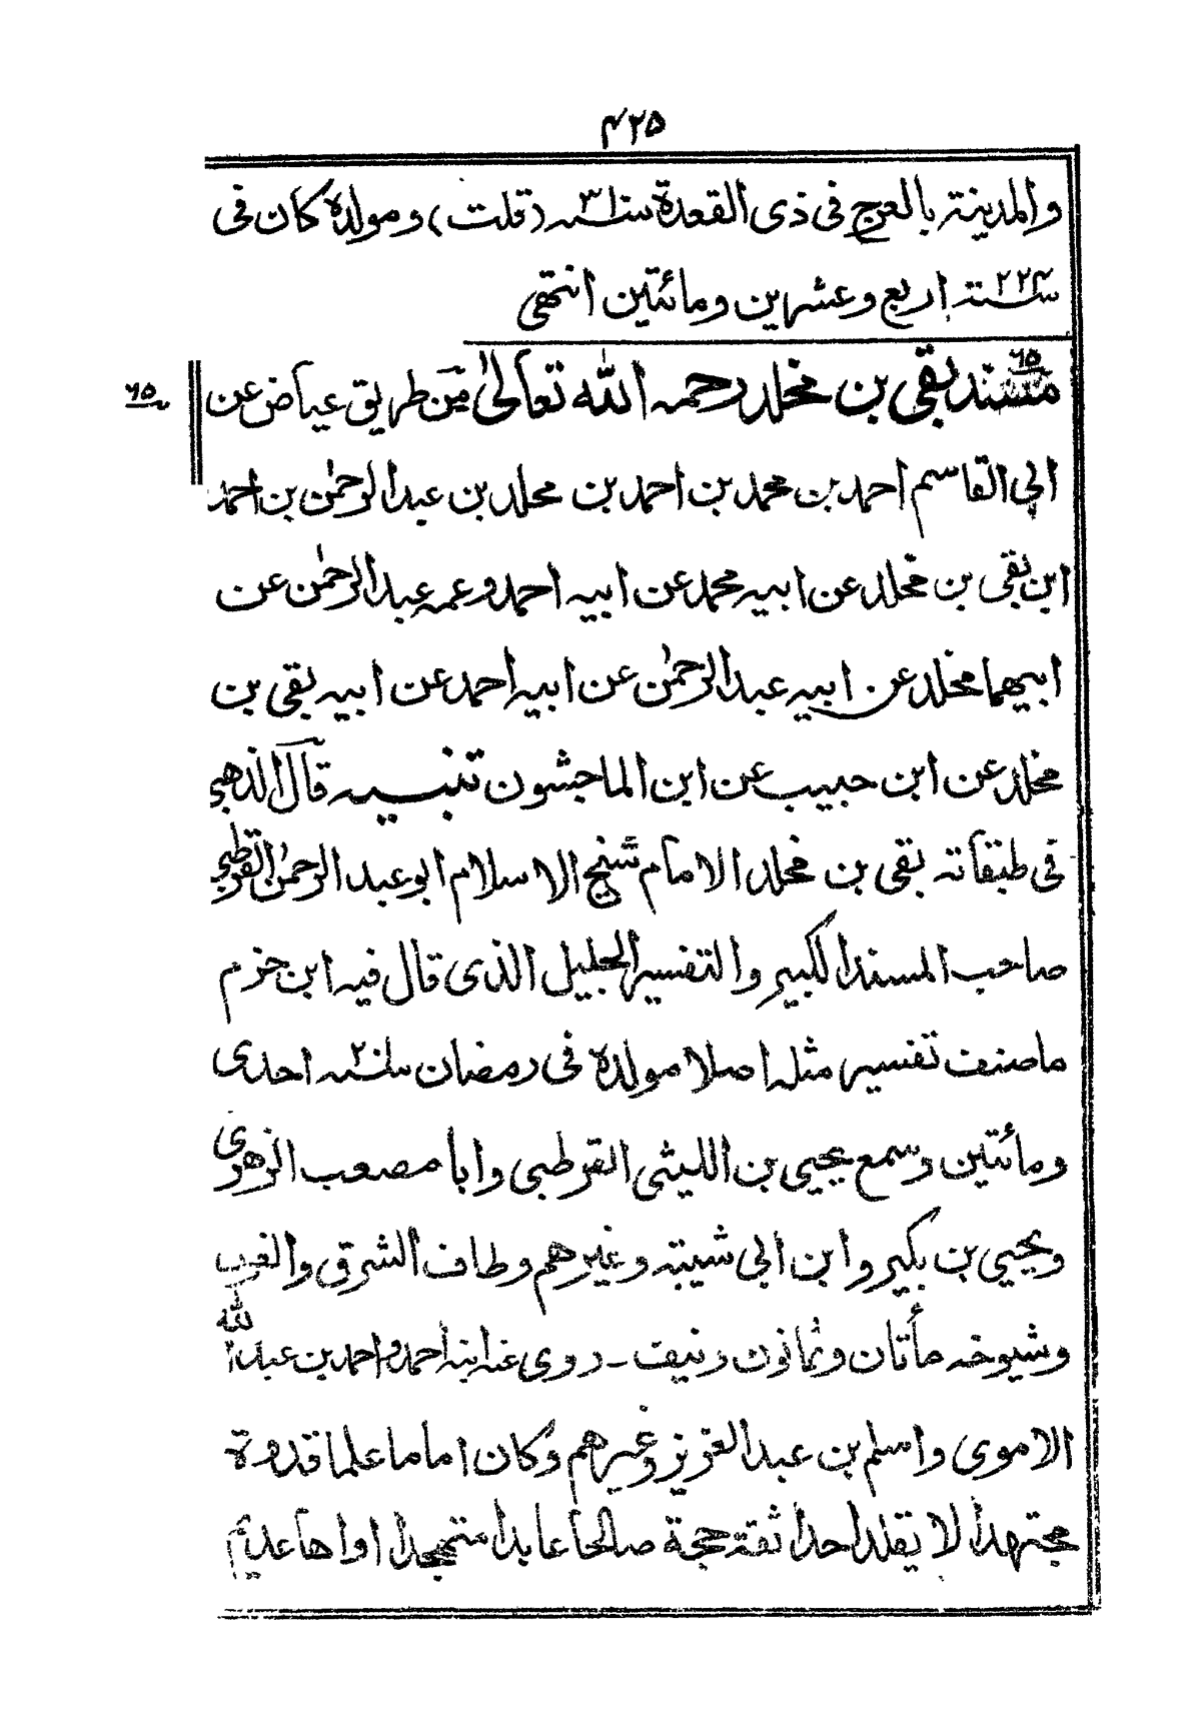 ۴۲۵
والمدينة بالعرج فى ذى القعدة سنة ۳۰۱ (قلت) ومولدة كان فى
سنة ۲۲۴ اربع وعشرين ومائتين انتهى
مسند بقى بن مخلد رحمه الله تعالىٰ من طريق عياض عن
۶۵
ابى القاسم احمد بن محمد بن احمد بن مخلد بن عبد الرحمٰن بن احمد
ابن بقى بن مخلد عن ابيه محمد عن ابيه احمد وعمه عبد الرحمٰن عن
ابيهما مخلد عن ابيه عبد الرحمٰن عن ابيه احمد عن ابيه بقى بن
مخلد عن ابن حبيب عن ابن الماجشون تنبيه قال الذهبى
فى طبقاته بقى بن مخلد الامام شيخ الاسلام ابو عبد الرحمٰن القرطبى
صاحب المسند الكبير والتفسير الجليل الذى قال فيه ابن حزم
ما صنف تفسير مثله اصلا مولدة فى رمضان سنة ۲۰۱ احدى
ومائتين وسمع يحيى بن الليثى القرطبى وابا مصعب الزهرى
ويحيى بن بكير وابن ابى شيبة وغيرهم وطاف الشرق والغرب
وشيوخه مأتان وثمانون ونيف ـ روى عنه ابنه احمد واحمد بن عبد الله
الاموى واسلم بن عبد العزيز وغيرهم وكان اماما علما قدوة
مجتهدا لا يقلد احدا ثقة حجة صالحا عابدا متهجدا اواها عديم